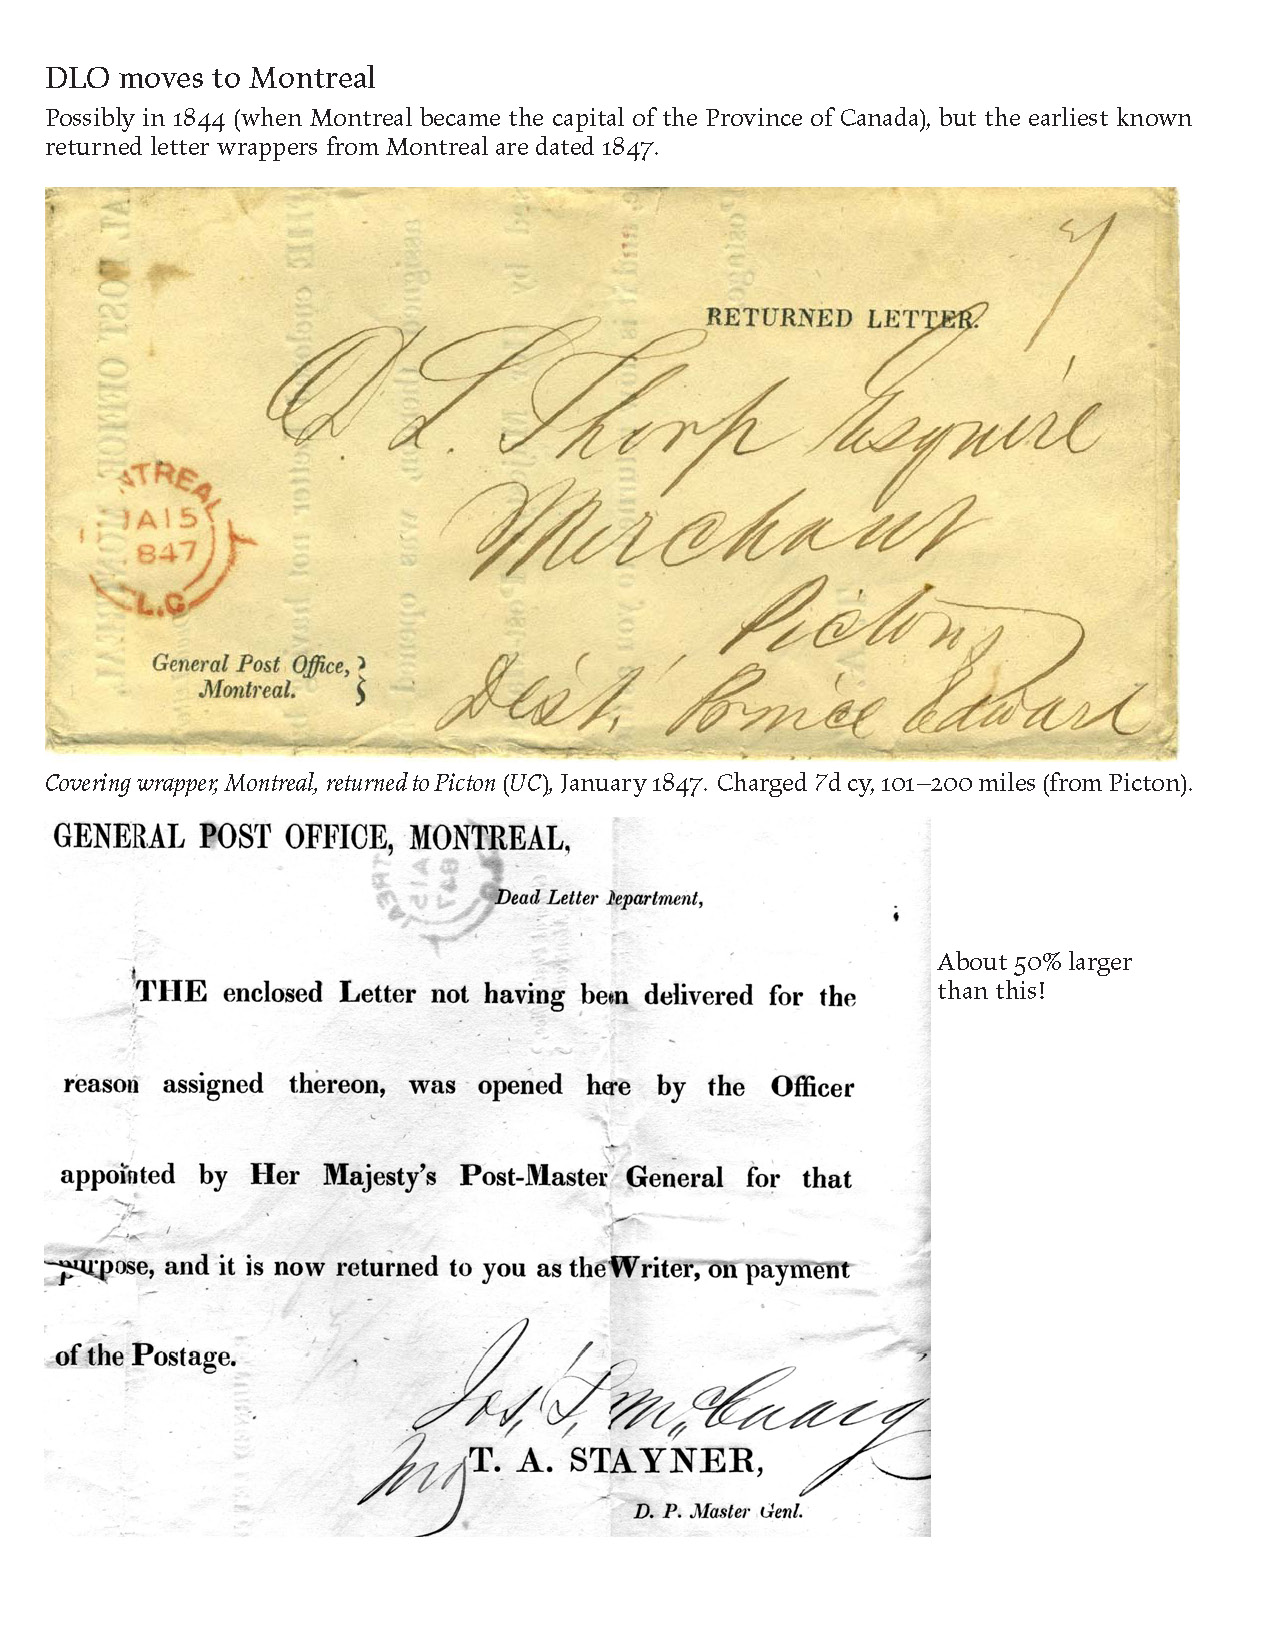 DLO moves to Montreal
Possibly in 1844 (when Montreal became the capital of the Province of Canada), but the earliest known
returned letter wrappers from Montreal are dated 1847.
7
RETURNED LETTER.
D. L. Thorp Esquire
Merchant
Picton
Dist. Prince Edward
TREAL
JA 15
847
L.C
General Post Office,
Montreal.
Covering wrapper, Montreal, returned to Picton (UC), January 1847. Charged 7d cy, 101–200 miles (from Picton).
GENERAL POST OFFICE, MONTREAL,
Dead Letter Department,
THE enclosed Letter not having been delivered for the
reason assigned thereon, was opened here by the Officer
appointed by Her Majesty's Post-Master General for that
purpose, and it is now returned to you as the Writer, on payment
of the Postage.
Jos. F. McCuaig
T. A. STAYNER,
D. P. Master Genl.
About 50% larger
than this!